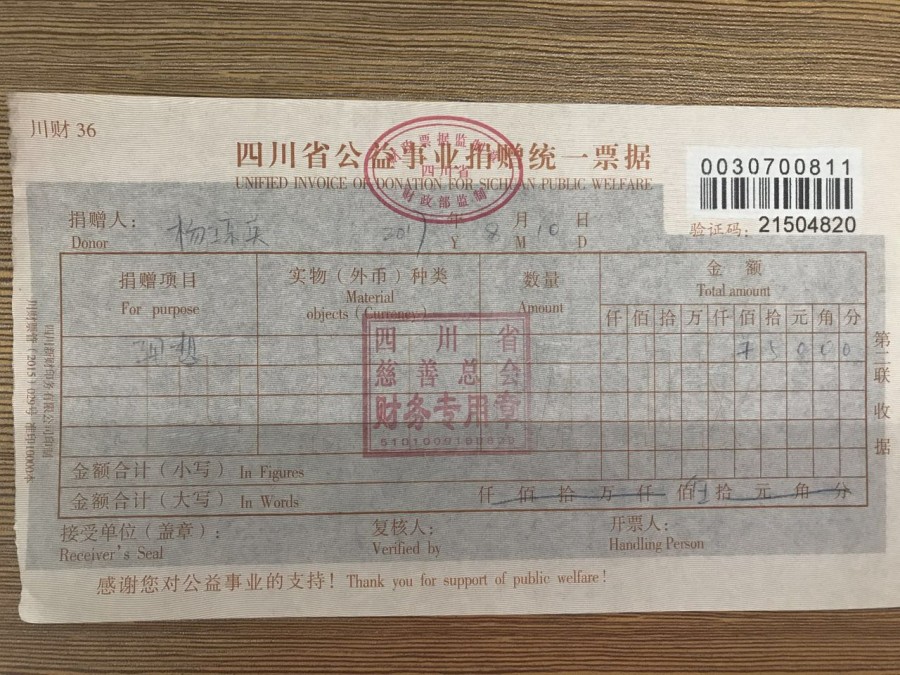 川财 36
四川省公益事业捐赠统一票据
UNIFIED INVOICE OF DONATION FOR SICHUAN PUBLIC WELFARE
四川省
财政部监制
0030700811
验证码：21504820
捐赠人： 2017 年 8 月 10 日
Donor Y M D
捐赠项目 实物（外币）种类 数量 金额
For purpose Material objects (Currency) Amount Total amount
仟 佰 拾 万 仟 佰 拾 元 角 分
四川省
慈善总会
财务专用章
金额合计（小写） In Figures
金额合计（大写） In Words 仟 佰 拾 万 仟 佰 拾 元 角 分
接受单位（盖章）： 复核人： 开票人：
Receiver's Seal Verified by Handling Person
感谢您对公益事业的支持！ Thank you for support of public welfare!
第二联 收据